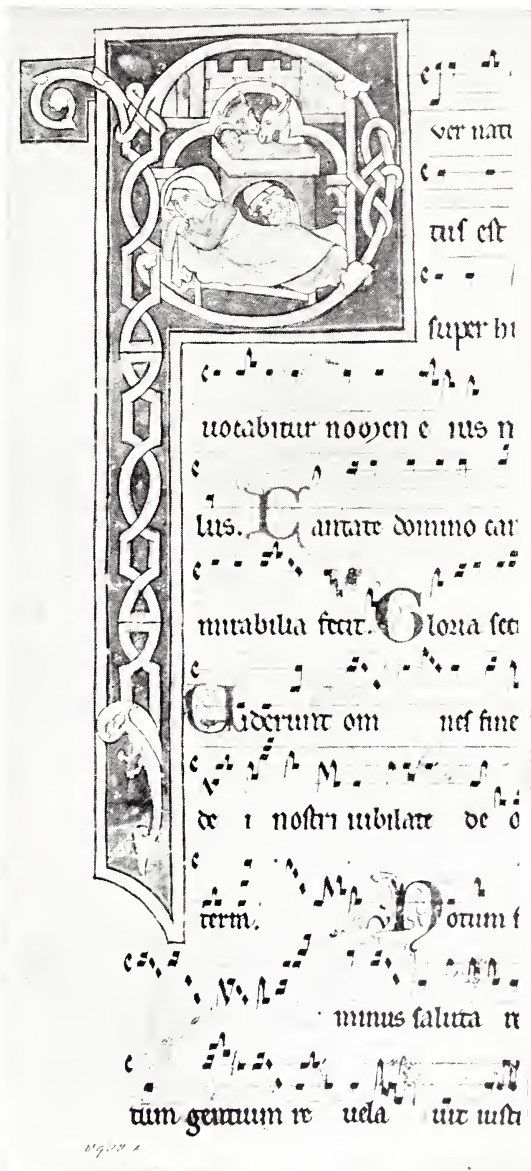 P
ver nati
tus est
super hu
uocabitur nomen e ius n
lius. Cantate domino can
mirabilia fecit. Gloria secu
Uiderunt om nes fine
de i nostri iubilate de o
terra. Notum f
minus saluta re
tum gentium re uela uit iusti